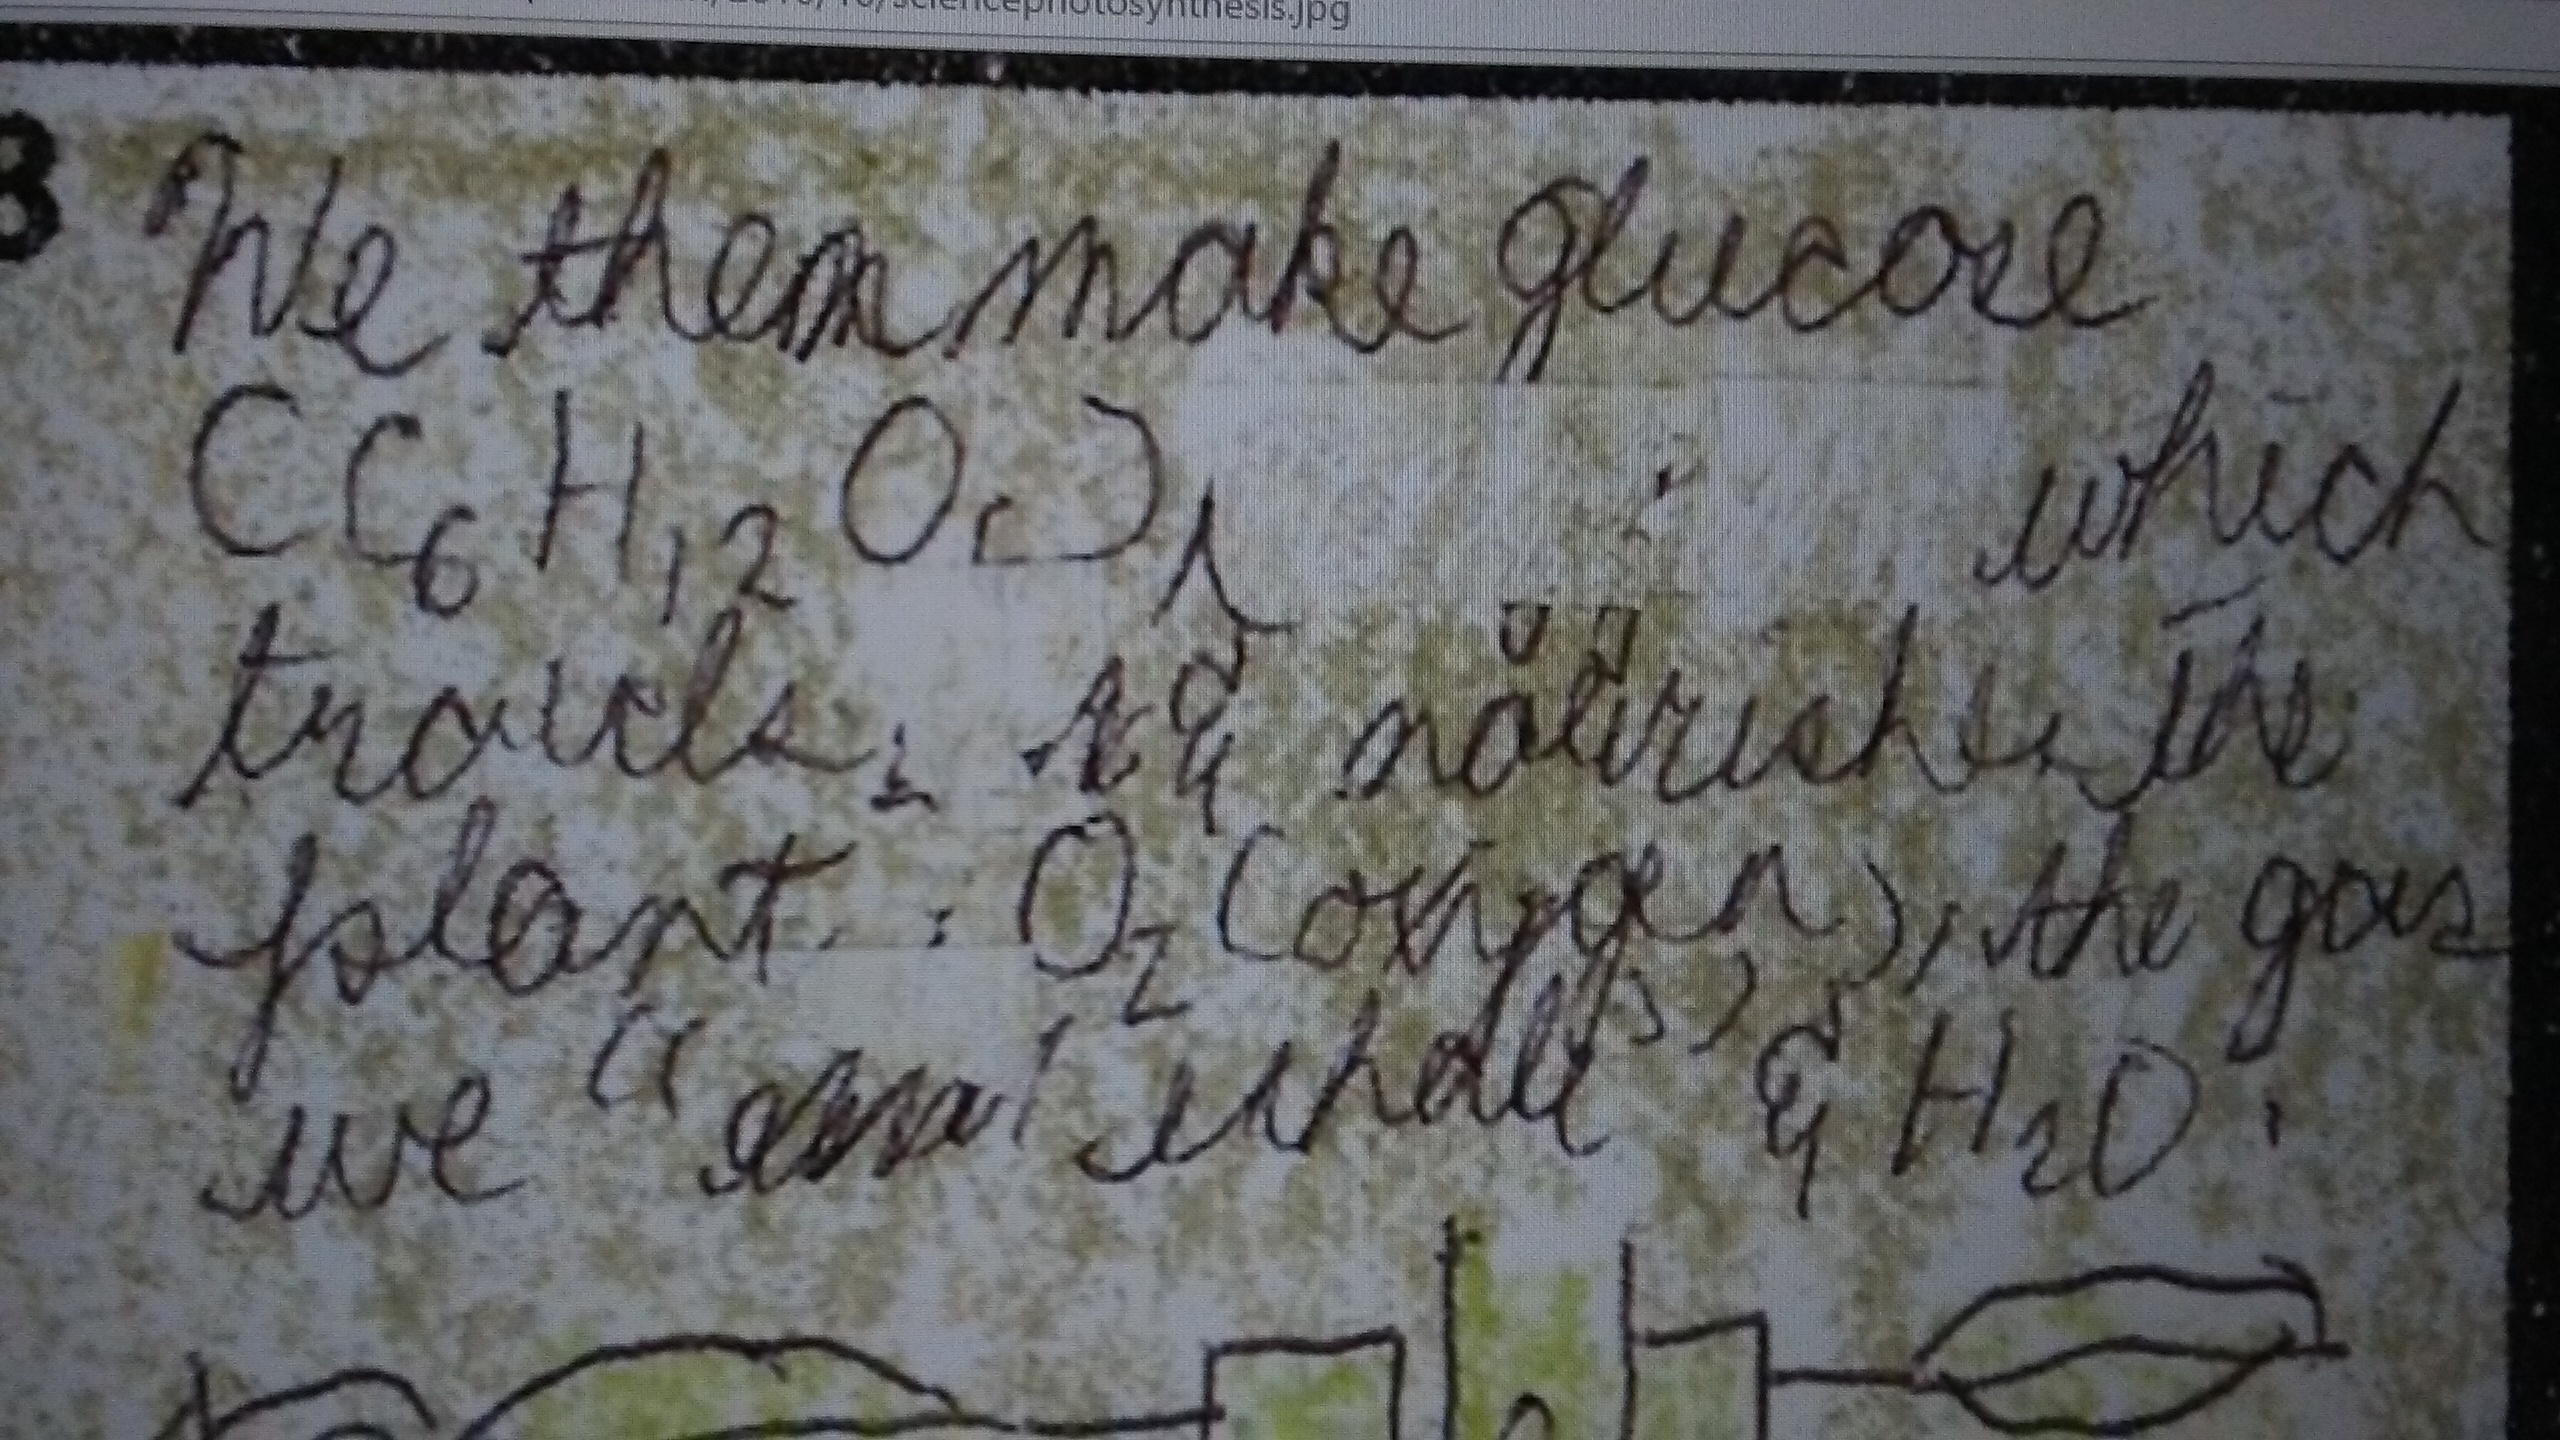 sciencephotosynthesis.jpg
3 We then make glucose
(C6H12O6), which
travels & nourishes the
plant. O2 (oxygen), the gas
we "exhale" & H2O.